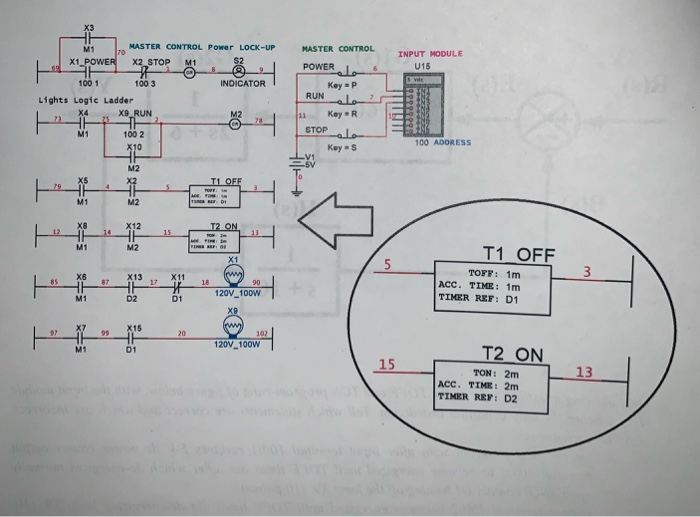 X3
M1
70
MASTER CONTROL Power LOCK-UP
69
X1_POWER
X2_STOP
M1
8
S2
9
100 1
100 3
INDICATOR
Lights Logic Ladder
73
X4
M1
75
X9_RUN
100 2
2
M2
78
X10
M2
79
X5
M1
4
X2
M2
5
T1 OFF
TOFF: 1m
ACC. TIME: 1m
TIMER REF: D1
3
12
X8
M1
14
X12
M2
15
T2 ON
TON: 2m
ACC. TIME: 2m
TIMER REF: D2
13
85
X6
M1
87
X13
D2
17
X11
D1
18
X1
120V_100W
90
97
X7
M1
99
X15
D1
20
X9
120V_100W
102
MASTER CONTROL
INPUT MODULE
POWER
6
U15
Key = P
5 Vdc
RUN
7
11
Key = R
10
STOP
Key = S
100 ADDRESS
V1
5V
0
5
T1 OFF
TOFF: 1m
ACC. TIME: 1m
TIMER REF: D1
3
15
T2 ON
TON: 2m
ACC. TIME: 2m
TIMER REF: D2
13